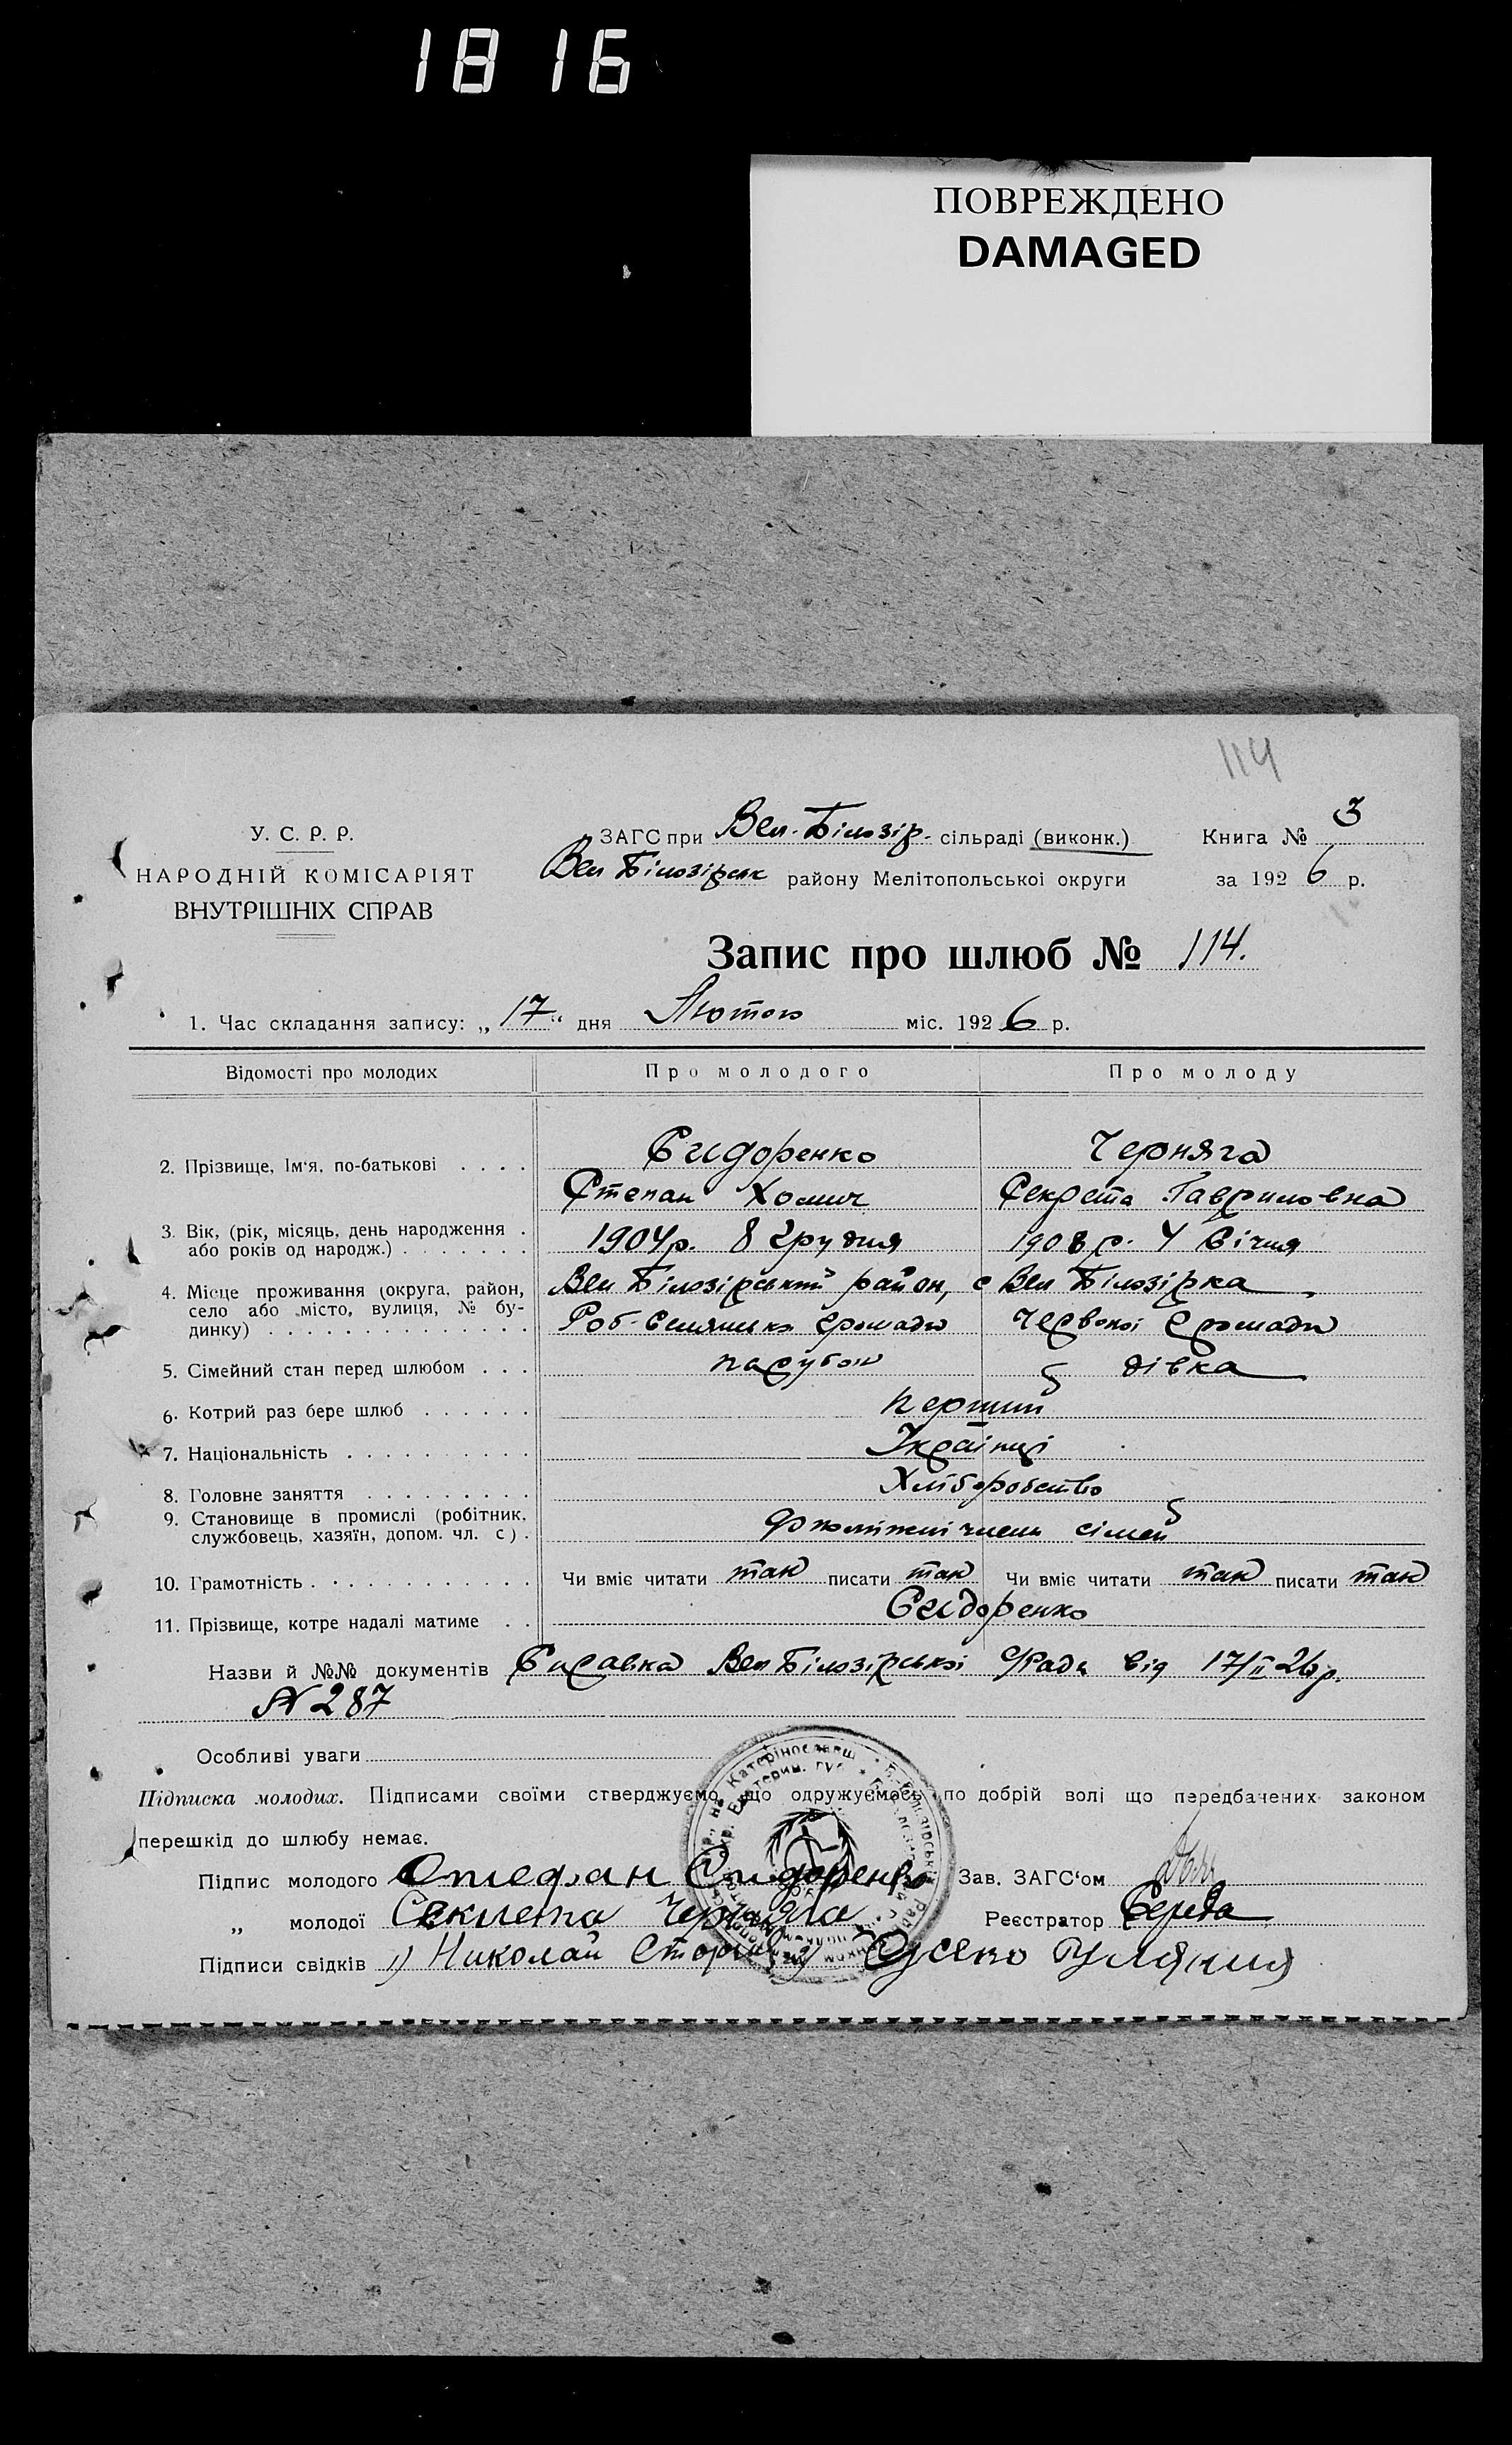 1816
ПОВРЕЖДЕНО
DAMAGED
114
У. С. Р. Р.
НАРОДНІЙ КОМІСАРІЯТ
ВНУТРІШНІХ СПРАВ
ЗАГС при Вел. Білозір. сільраді (виконк.)
Вел Білозірськ району Мелітопольської округи
Книга № 3
за 1926 р.
Запис про шлюб № 114.
1. Час складання запису: „17“ дня Лютого міс. 1926 р.
Відомості про молодих Про молодого Про молоду
2. Прізвище, Ім'я, по-батькові . . . . Сидоренко Черняга
Степан Хомич Секрета Гавриловна
3. Вік, (рік, місяць, день народження . або років од народж.) . . . . . . . 1904р. 8 грудня 1908 р. 4 Січня
4. Місце проживання (округа, район, село або місто, вулиця, № будинку) . . . . . . . . . . . . . . Вел Білозірський район, с Вел Білозірка
Роб-Селянська громада Червоної громади
5. Сімейний стан перед шлюбом . . . парубок дівка
6. Котрий раз бере шлюб . . . . . . перший
7. Національність . . . . . . . . . . Українці
8. Головне заняття . . . . . . . . . Хліборобство
9. Становище в промислі (робітник, службовець, хазяїн, допом. чл. с) . члени сімей
10. Грамотність . . . . . . . . . . . . Чи вміє читати так писати так Чи вміє читати так писати так
11. Прізвище, котре надалі матиме . . Сидоренко
Назви й №№ документів Справка Вел Білозірської С/Ради від 17/II 26р.
N 287
Особливі уваги
Підписка молодих. Підписами своїми стверджуємо, що одружуємось по добрій волі що передбачених законом
перешкід до шлюбу немає.
Підпис молодого Стефан Сидоренко Зав. ЗАГС'ом
„ молодої Секлета Черняга Реєстратор Середа
Підписи свідків 1) Николай 2)